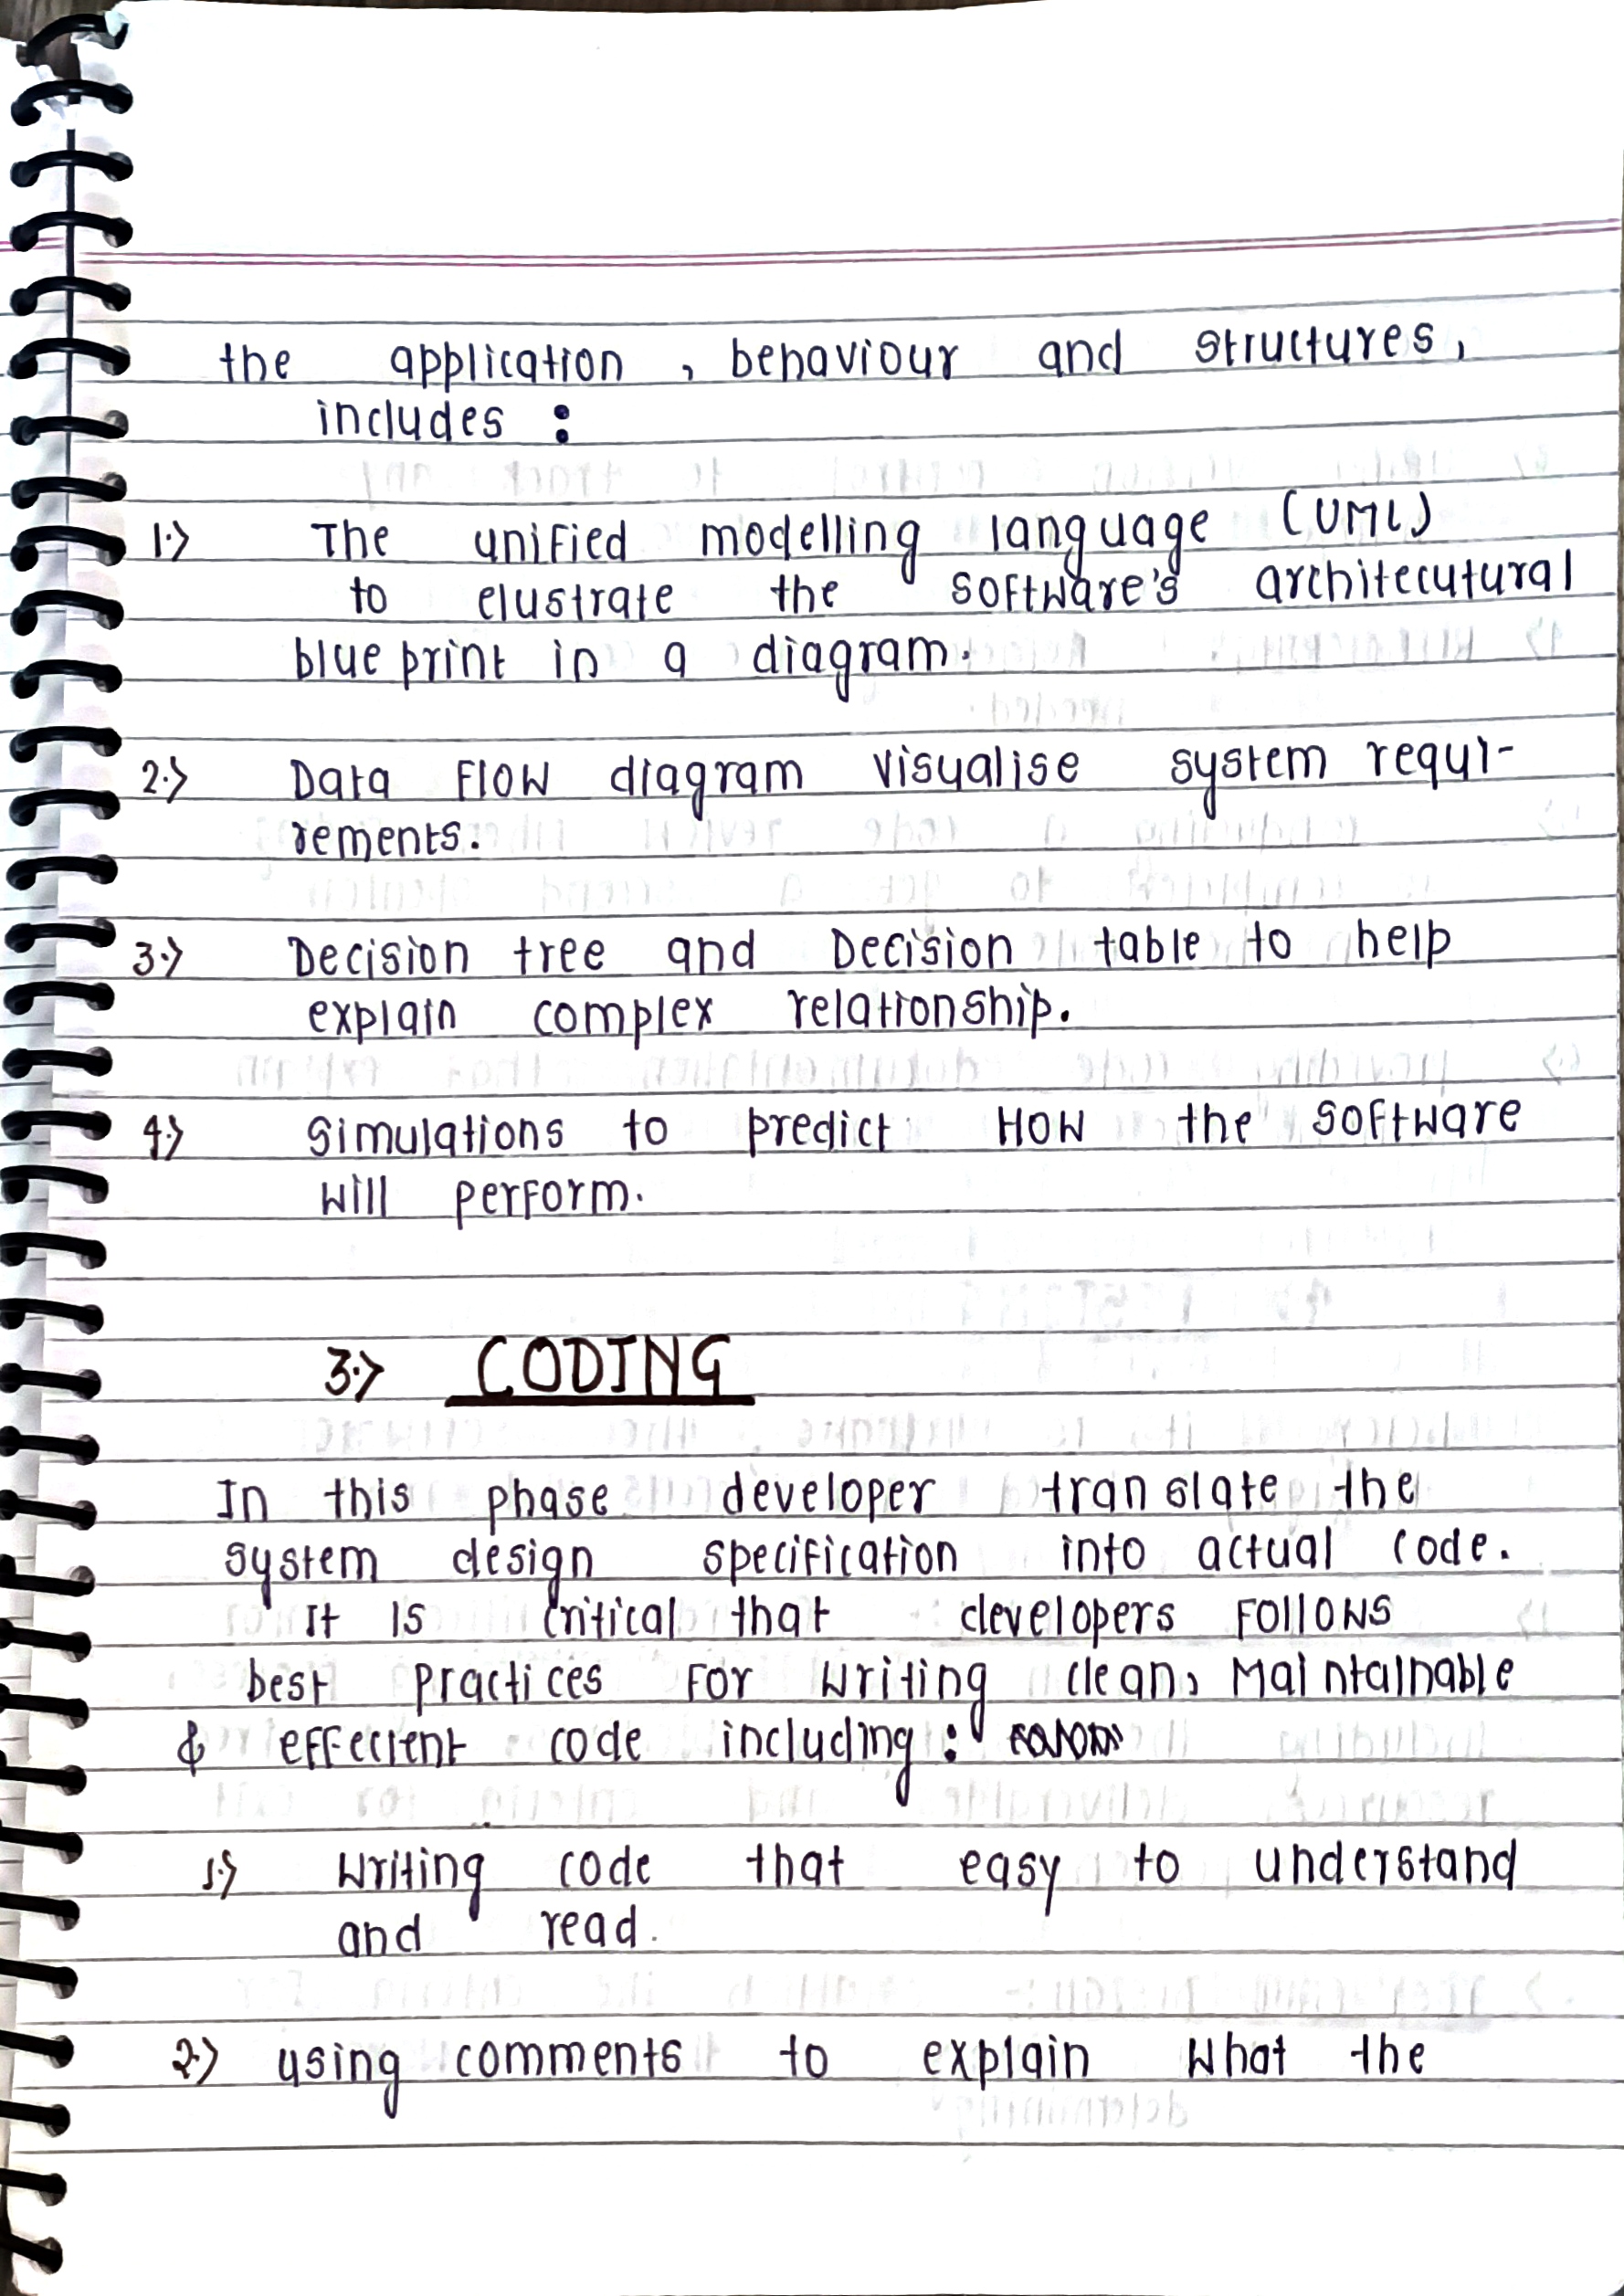 the application , behaviour and structures,
includes :
1.> The unified modelling language (UML)
to elustrate the software's architecutural
blue print in a diagram.
2.> Data Flow diagram visualise system requi-
rements.
3.> Decision tree and Decision table to help
explain complex relationship.
4.> Simulations to predict How the software
will perform.
3.> CODING
In this phase developer translate the
system design specification into actual code.
It is critical that developers follows
best practices for writing clean, Maintainable
& effecient code including :
1.> Writing code that easy to understand
and read.
2.> using comments to explain What the